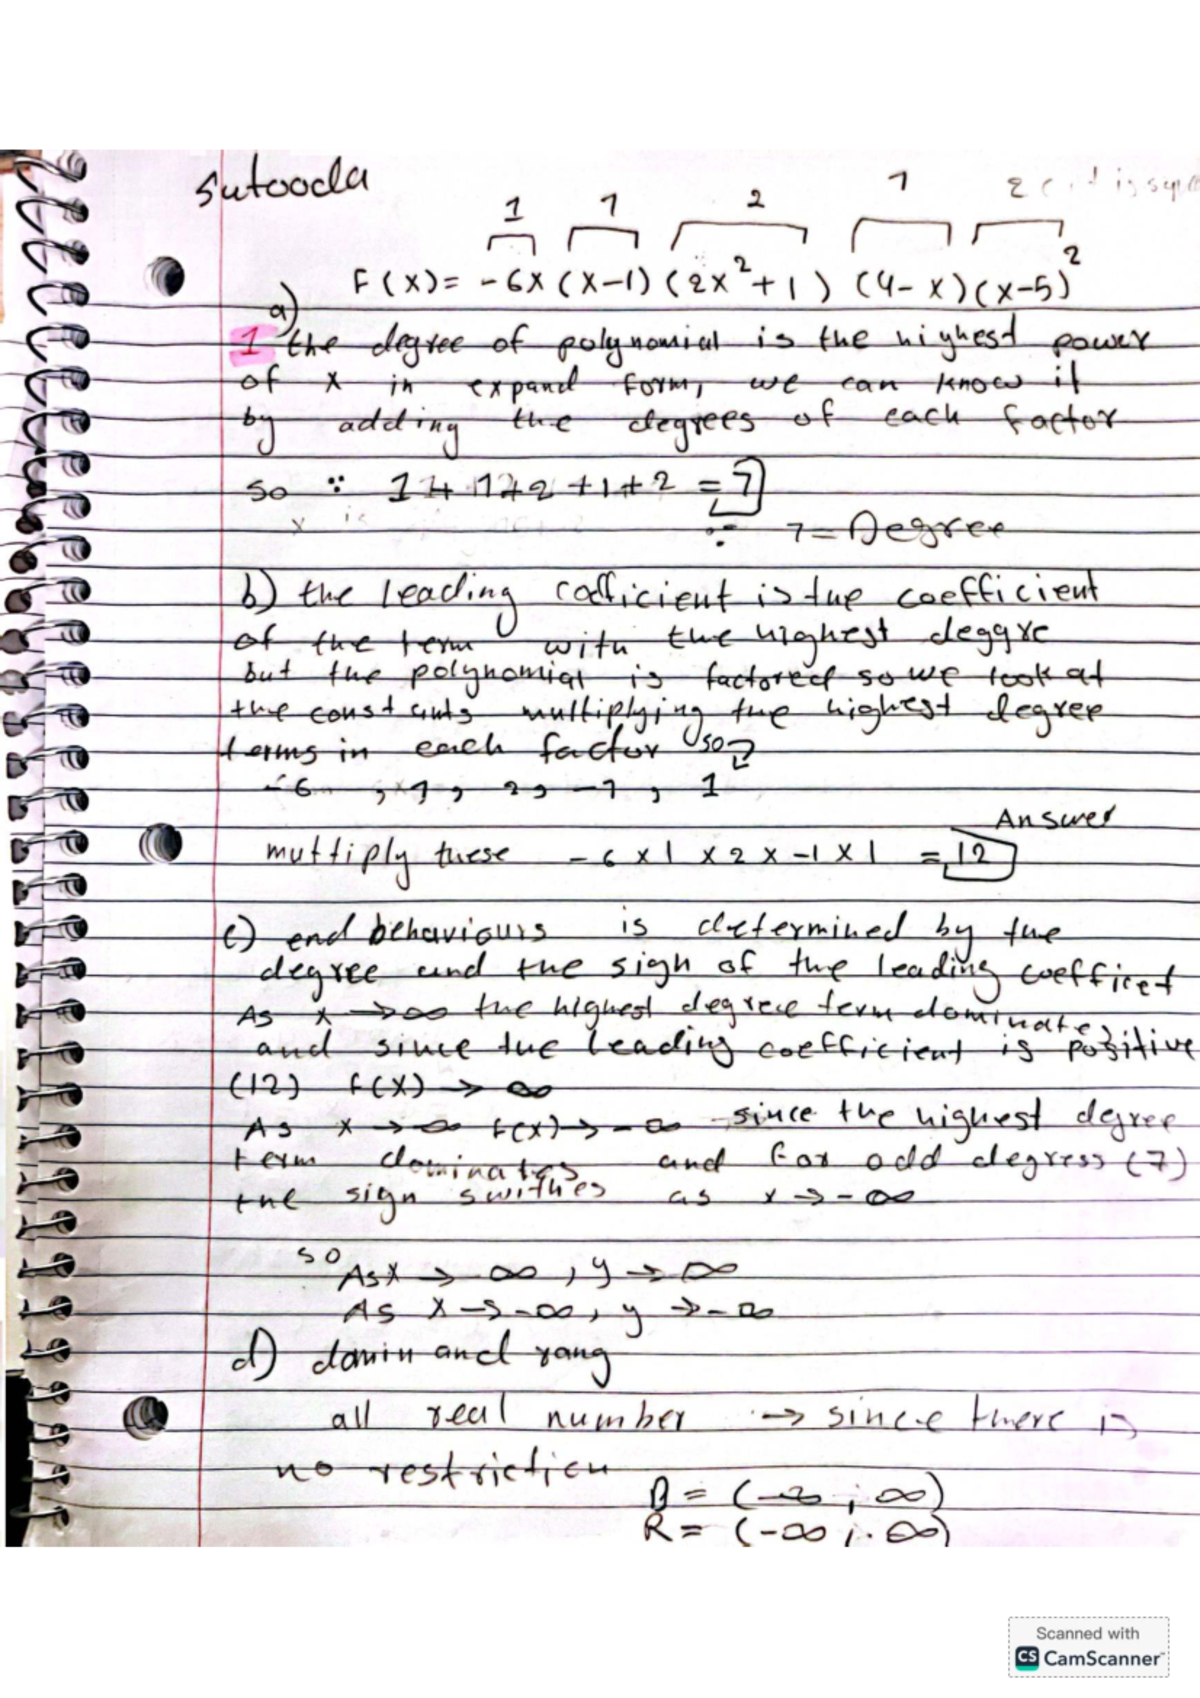 sutooda
1 1 2 1 2
F(x)= -6x (x-1) (2x²+1) (4-x)(x-5)²
a)
1 the degree of polynomial is the highest power
of x in expand form, we can know it
by adding the degrees of each factor
so ∵ 1+1+2+1+2 = 7
∵ 7 = Degree
b) the leading coefficient is the coefficient
of the term with the highest deggre
but the polynomial is factored so we look at
the constants multiplying the highest degree
terms in each factor so
-6 , 1, 2, -1, 1
Answer
multiply these -6 x 1 x 2 x -1 x 1 = 12
c) end behaviours is determined by the
degree and the sigh of the leading coefficet
As x → ∞ the highest degree term dominates,
and since the leading coefficient is positive
(12) f(x) → ∞
As x → -∞ f(x) → -∞ since the highest degree
term dominates and for odd degress (7)
the sign swithes as x → -∞
so As x → ∞ , y → ∞
As x → -∞, y → -∞
d) domin and rang
all real number → since there is
no restriction
D = (-∞ , ∞)
R = (-∞ , ∞)
Scanned with
CS CamScanner